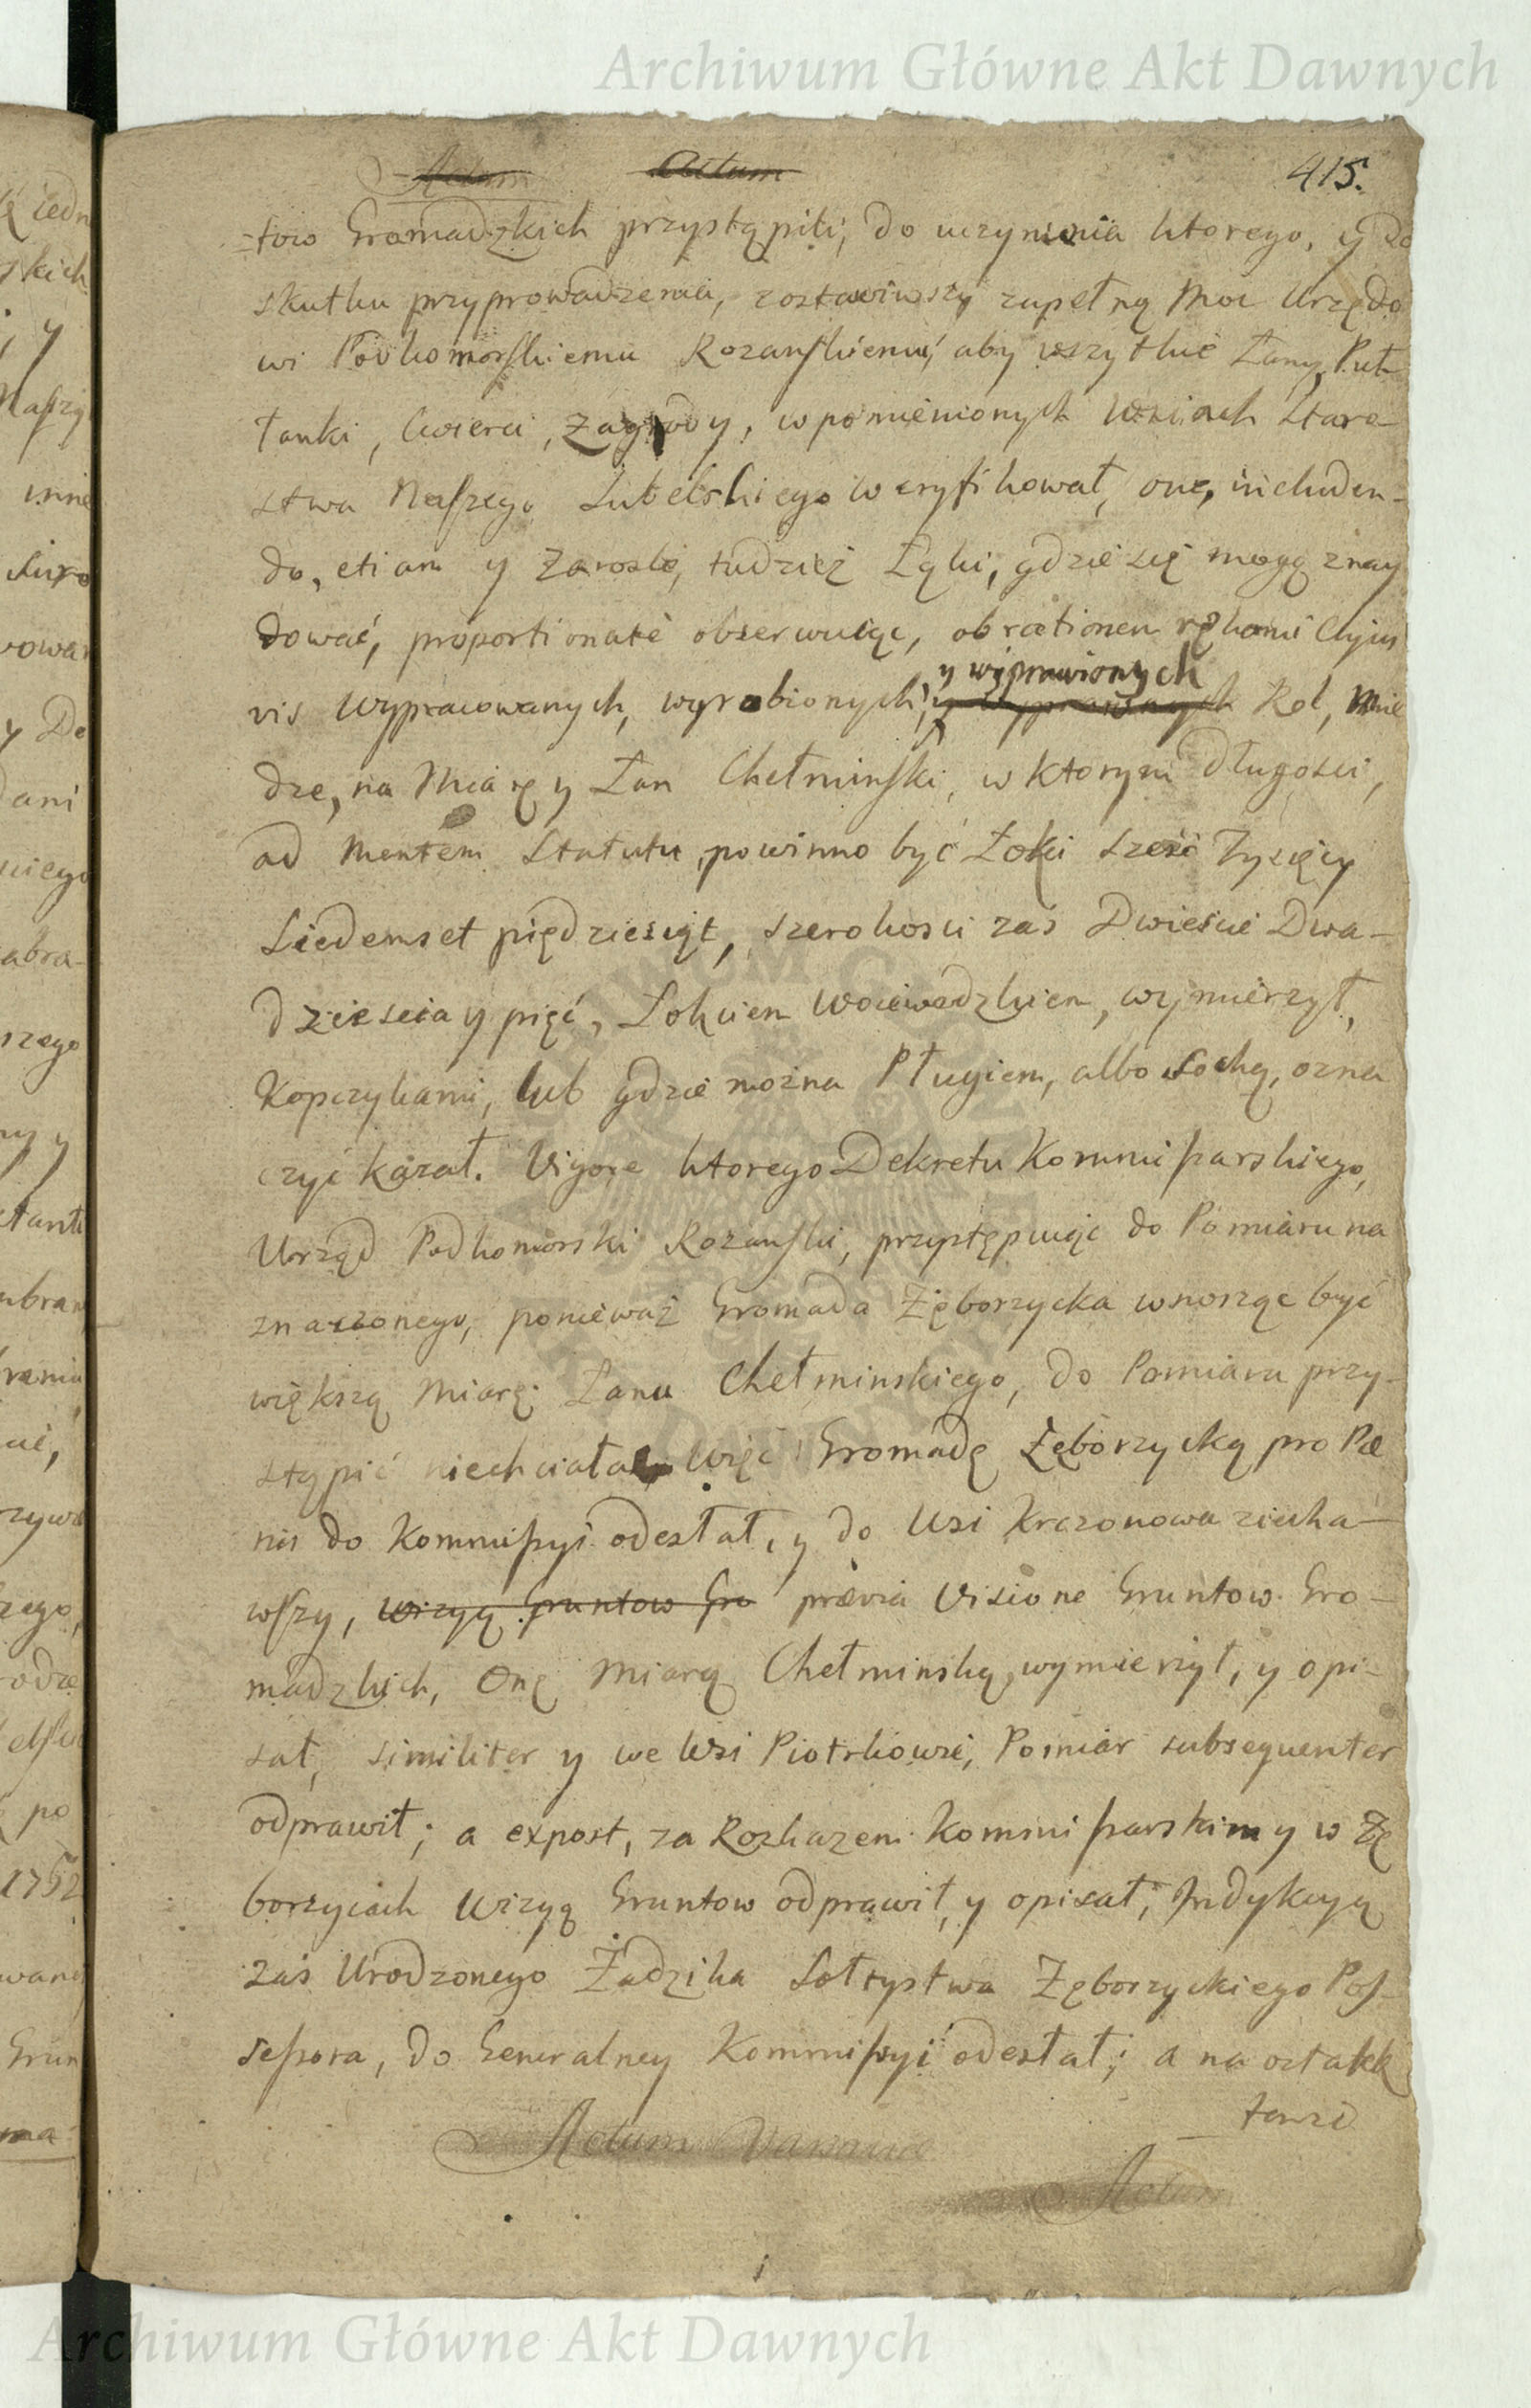 Archiwum Główne Akt Dawnych
Actum Actum 415.
-tow Gromadzkich przystąpili, do uczynienia ktorego, y do
skutku przyprowadzenia, zostawiwszy zupełną Moc Urzędo
wi Podkomorskiemu Rozanskiemu, aby wszytkie Łany, Puł
łanki, Cwierci, Zagrody, w pomienionych Wsiach Staro-
stwa Naszego Lubelskiego weryfikował, one, includen-
do, etiam y Zarosle, tudziez Łąki, gdzie się mogą znay
dować, proportionate obserwuiąc, ob rationem rękami Cujus
vis wypracowanych, wyrobionych, y wyprawionych Rol, Mie
dze, na Miarę y Łan Chełminski, w ktorym Długosci,
ad Mentem Statutu, powinno być Łokci sześć Tysięcy
Siedemset piędziesiąt, szerokosci zas Dwieście Dwa-
dziescia y pięć, Łokciem Woiewodzkiem, wymierzył,
Kopczykami, lub gdzie mozna Pługiem, albo Sochą, ozna
czyć kazał. Vigore ktorego Dekretu Kommissarskiego,
Urząd Podkomorski Rozanski, przystępuiąc do Pomiaru na
znaczonego, ponieważ Gromada Zęborzycka wnosząc być
większą Miarę Łanu Chełminskiego, do Pomiaru przy-
stąpić niechciała, więc Gromadę Zęborzycką pro Pæ
nis do Kommissyi odesłał, y do Wsi Krczonowa ziecha-
wszy, wizyą Gruntow Gro prævia Visione Gruntow Gro-
madzkich, Onę Miarą Chełminską wymierzył, y opi-
sał, similiter y we Wsi Piotrkowie, Pomiar subsequenter
odprawił; a expost, za Rozkazem Kommissarskim y w Zę
borzycach Wizyą Gruntow odprawił, y opisał, Indykcyą
zas Urodzonego Żadzika Sołtystwa Zęborzyckiego Pos-
sessora, do Generalney Kommissyi odesłał; a na ostatek
Actum
Actum
Archiwum Główne Akt Dawnych